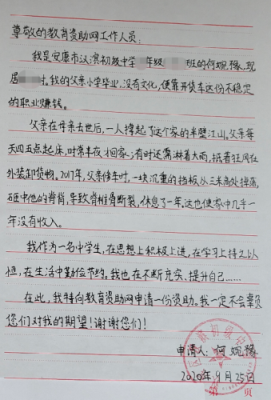 尊敬的教育资助网工作人员：
我是安康市汉滨初级中学 年级 班的何婉臻，现
居 。我的父亲小学毕业，没有文化，便靠开货车这份不稳定
的职业赚钱。
父亲在母亲去世后，一人撑起了这个家的半壁江山。父亲每
天四五点起床，时常半夜才回家；有时还需淋着大雨，抵着狂风在
外装卸货物。2017年，父亲修车时，一块沉重的挡板从三米高处掉落，
砸中他的背脊，导致脊椎骨断裂，休息了一年。这也使家中几乎一
年没有收入。
我作为一名中学生，在思想上积极上进，在学习上持之以
恒，在生活中勤俭节约。我也在不断充实，提升自己……
在此，我特向教育资助网申请一份资助。我一定不会辜负
您们对我的期望！谢谢您们！
申请人：何婉臻
2020年9月25日
第 页